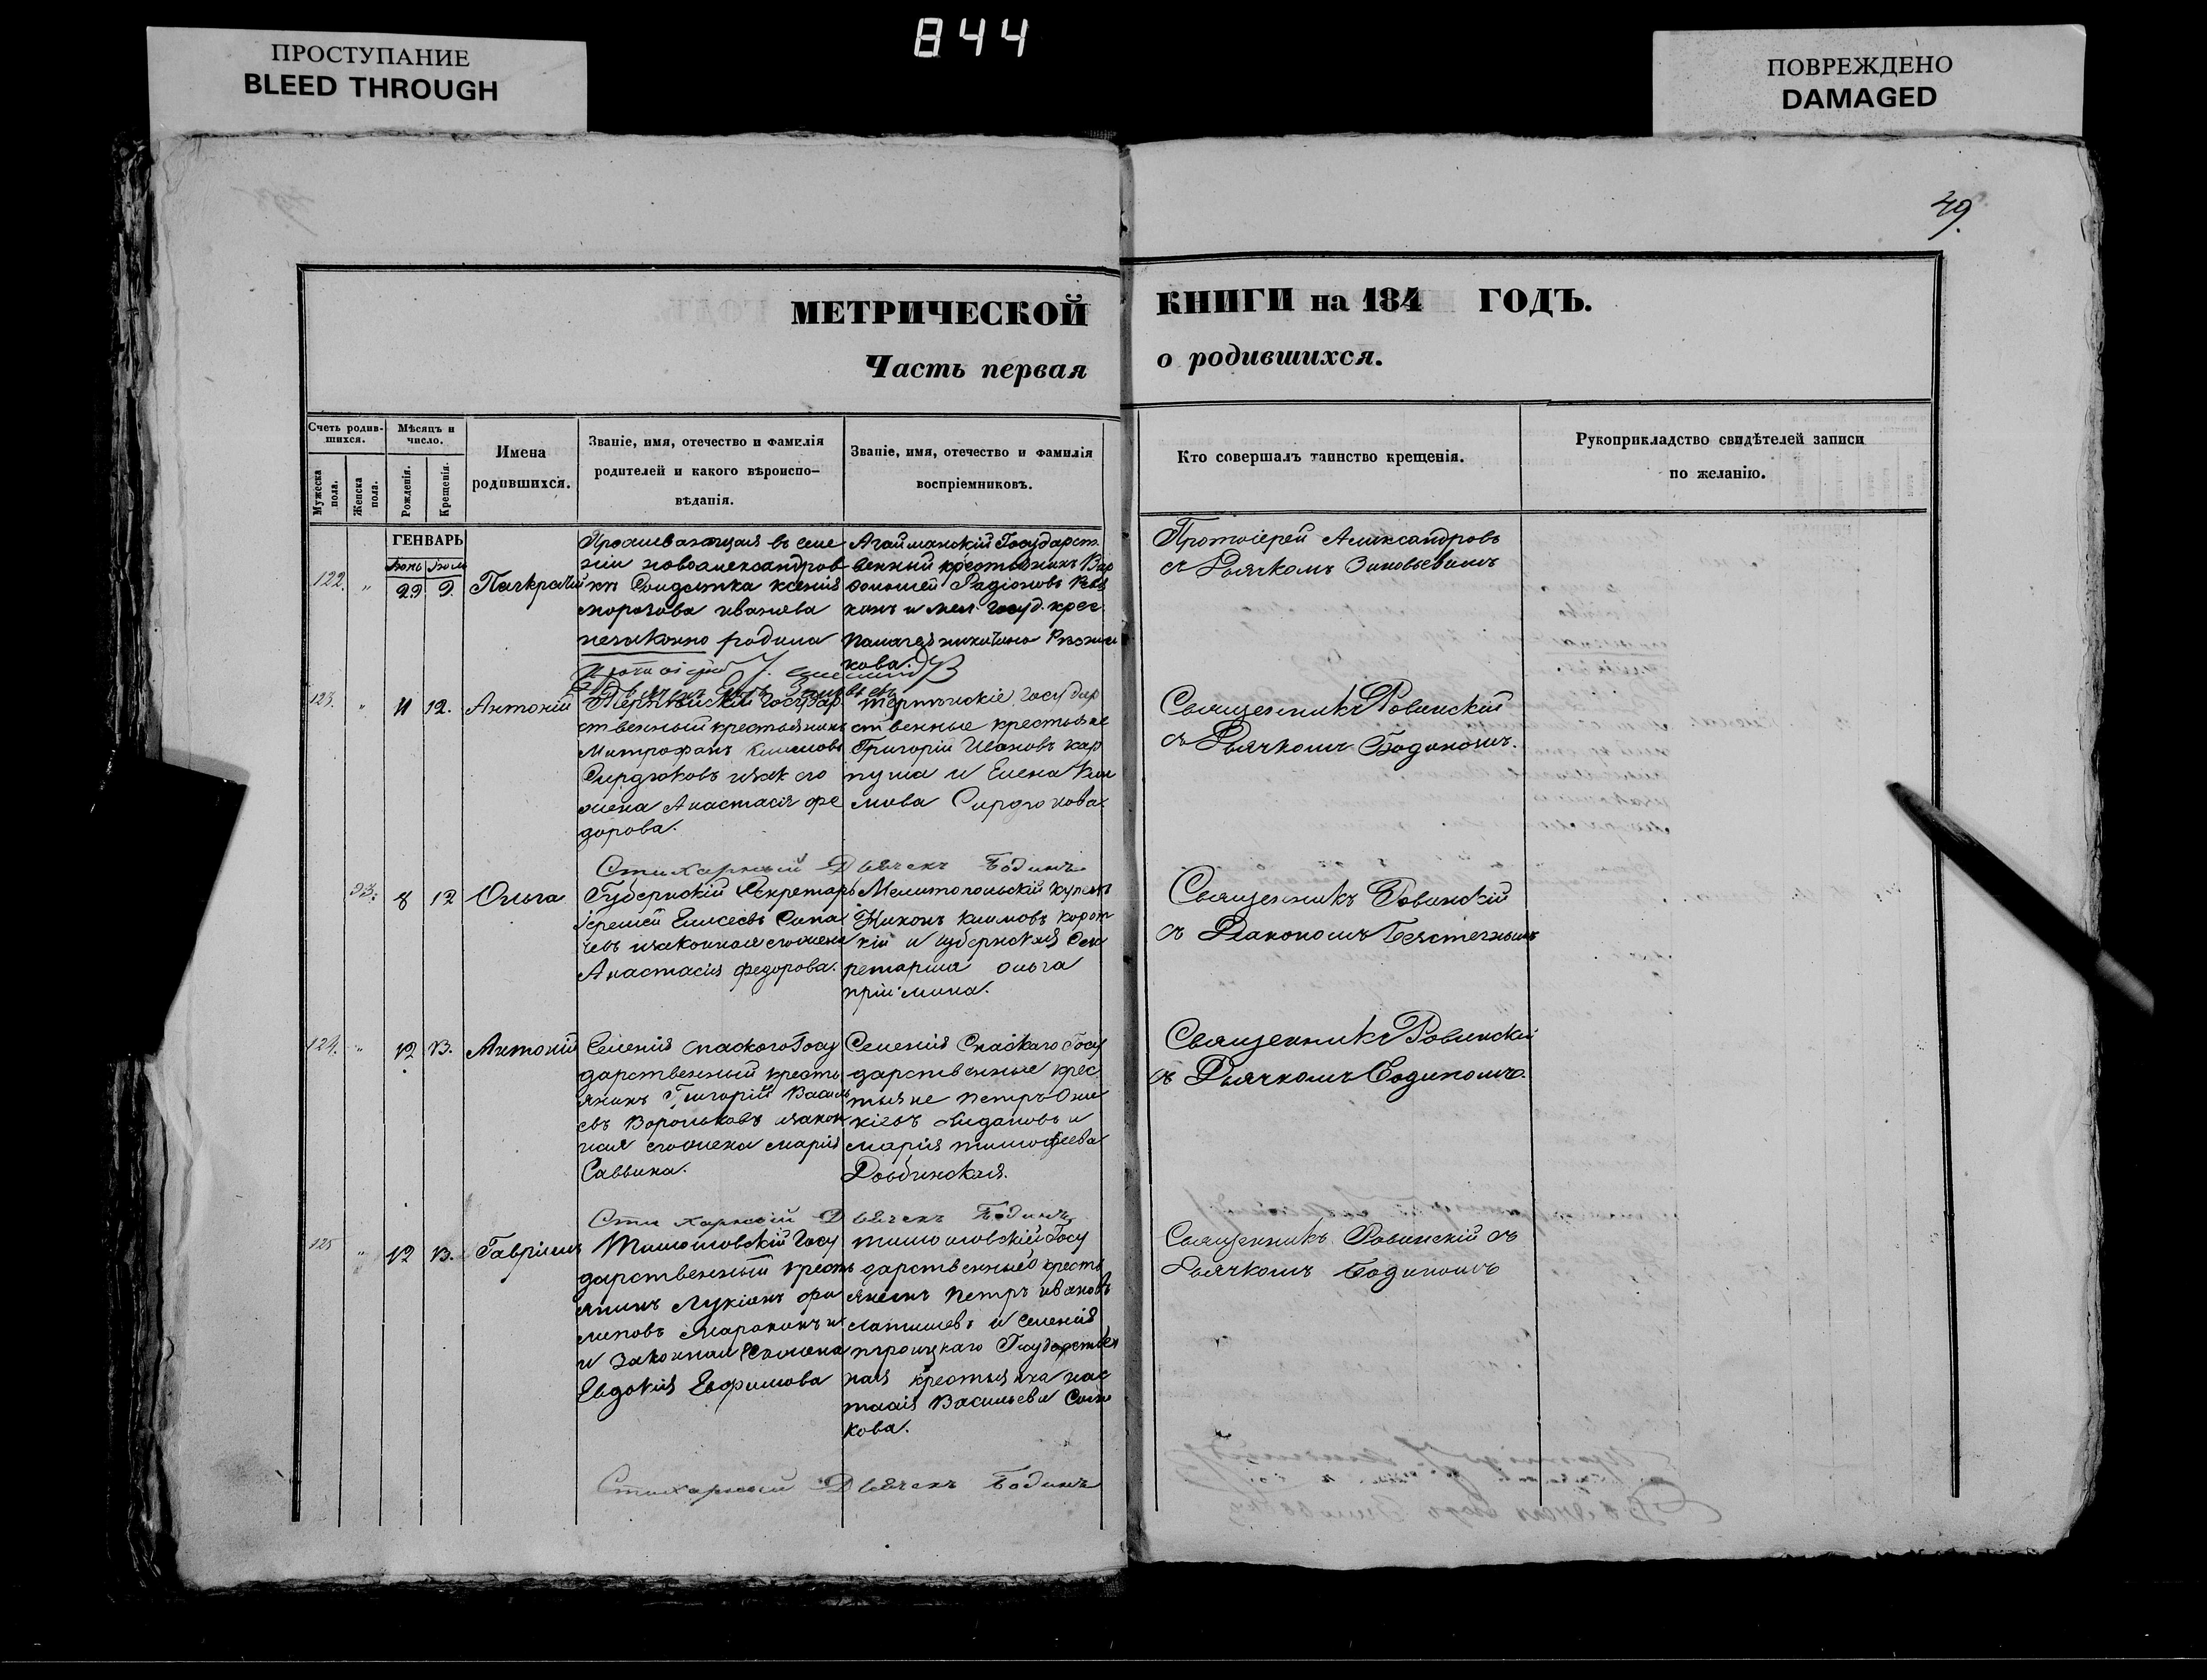 ПРОСТУПАНИЕ
BLEED THROUGH
844
ПОВРЕЖДЕНО
DAMAGED
49.
МЕТРИЧЕСКОЙ КНИГИ на 184 ГОДЪ.
Часть первая о родившихся.
Счетъ родив-
шихся.
Мужеска
пола.
Женска
пола.
Мѣсяцъ и
число.
Рожденія.
Крещенія.
Имена
родившихся.
Званіе, имя, отечество и фамилія
родителей и какого вѣроиспо-
вѣданія.
Званіе, имя, отечество и фамилія
воспріемниковъ.
Кто совершалъ таинство крещенія.
Рукоприкладство свидѣтелей записи
по желанію.
ГЕНВАРЬ
Іюнь Іюль
122. " 29 9. Панкратій
Проживающая въ селе
ніи новоалександров
ки Солдатка ксенія
морозова иванова
незаконно родила
Агайманскій Государст
венный крестьянинъ Вар
ѳоломей Радіоновъ
и мел. госуд. крес.
кова.
Протоіерей Александровъ
съ Дьячкомъ Зиновьевымъ
123. " 11 12. Антоній
Государ
ственный крестьянинъ
Митрофанъ Климовъ
Сирдюковъ изак его
жена Анастасія фе
дорова.
Государ
ственные крестьяне
Григорій Ивановъ кар
пуша и Елена Кли
мова Сирдюкова.
Священникъ Ровинскій
съ Дьячкомъ Бодинымъ.
Стихарный Дьячекъ Бодинъ
93. 8 12 Ольга
Губернскій Секретарь
Іеремей Елисеевъ
изаконная его жена
Анастасія федорова.
Мелитопольскій купецъ
Никонъ климовъ корот
кій и губернская Сек
ретарша ольга
Священникъ Ровинскій
съ Діакономъ
124. " 12 13. Антоній
Селенія спаскогоГосу
дарственный кресть
янинъ Григорій Василь
евъ Воронковъ изакон
ная его жена марія
Саввина.
Селенія Спаскаго Госу
дарственные крес
тьяне петръ
и
марія тимофеева
Довбинская.
Священникъ Ровинскій
съ Дьячкомъ Бодинымъ.
Стихарный Дьячекъ Бодинъ
125 " 12 13. Гавріилъ
Тимошовскій Госу
дарственный кресть
янинъ Лукіанъ фи
липовъ
и законная его жена
Евдокія Евфимова
тимошовскій Госу
дарственный кресть
янинъ петръ ивановъ
и селенія
троицкаго Государствен
ная крестьянка нас
тасія Васильева
кова.
Священникъ Ровинскій съ
Дьячкомъ Бодинымъ
Стихарный Дьячекъ Бодинъ